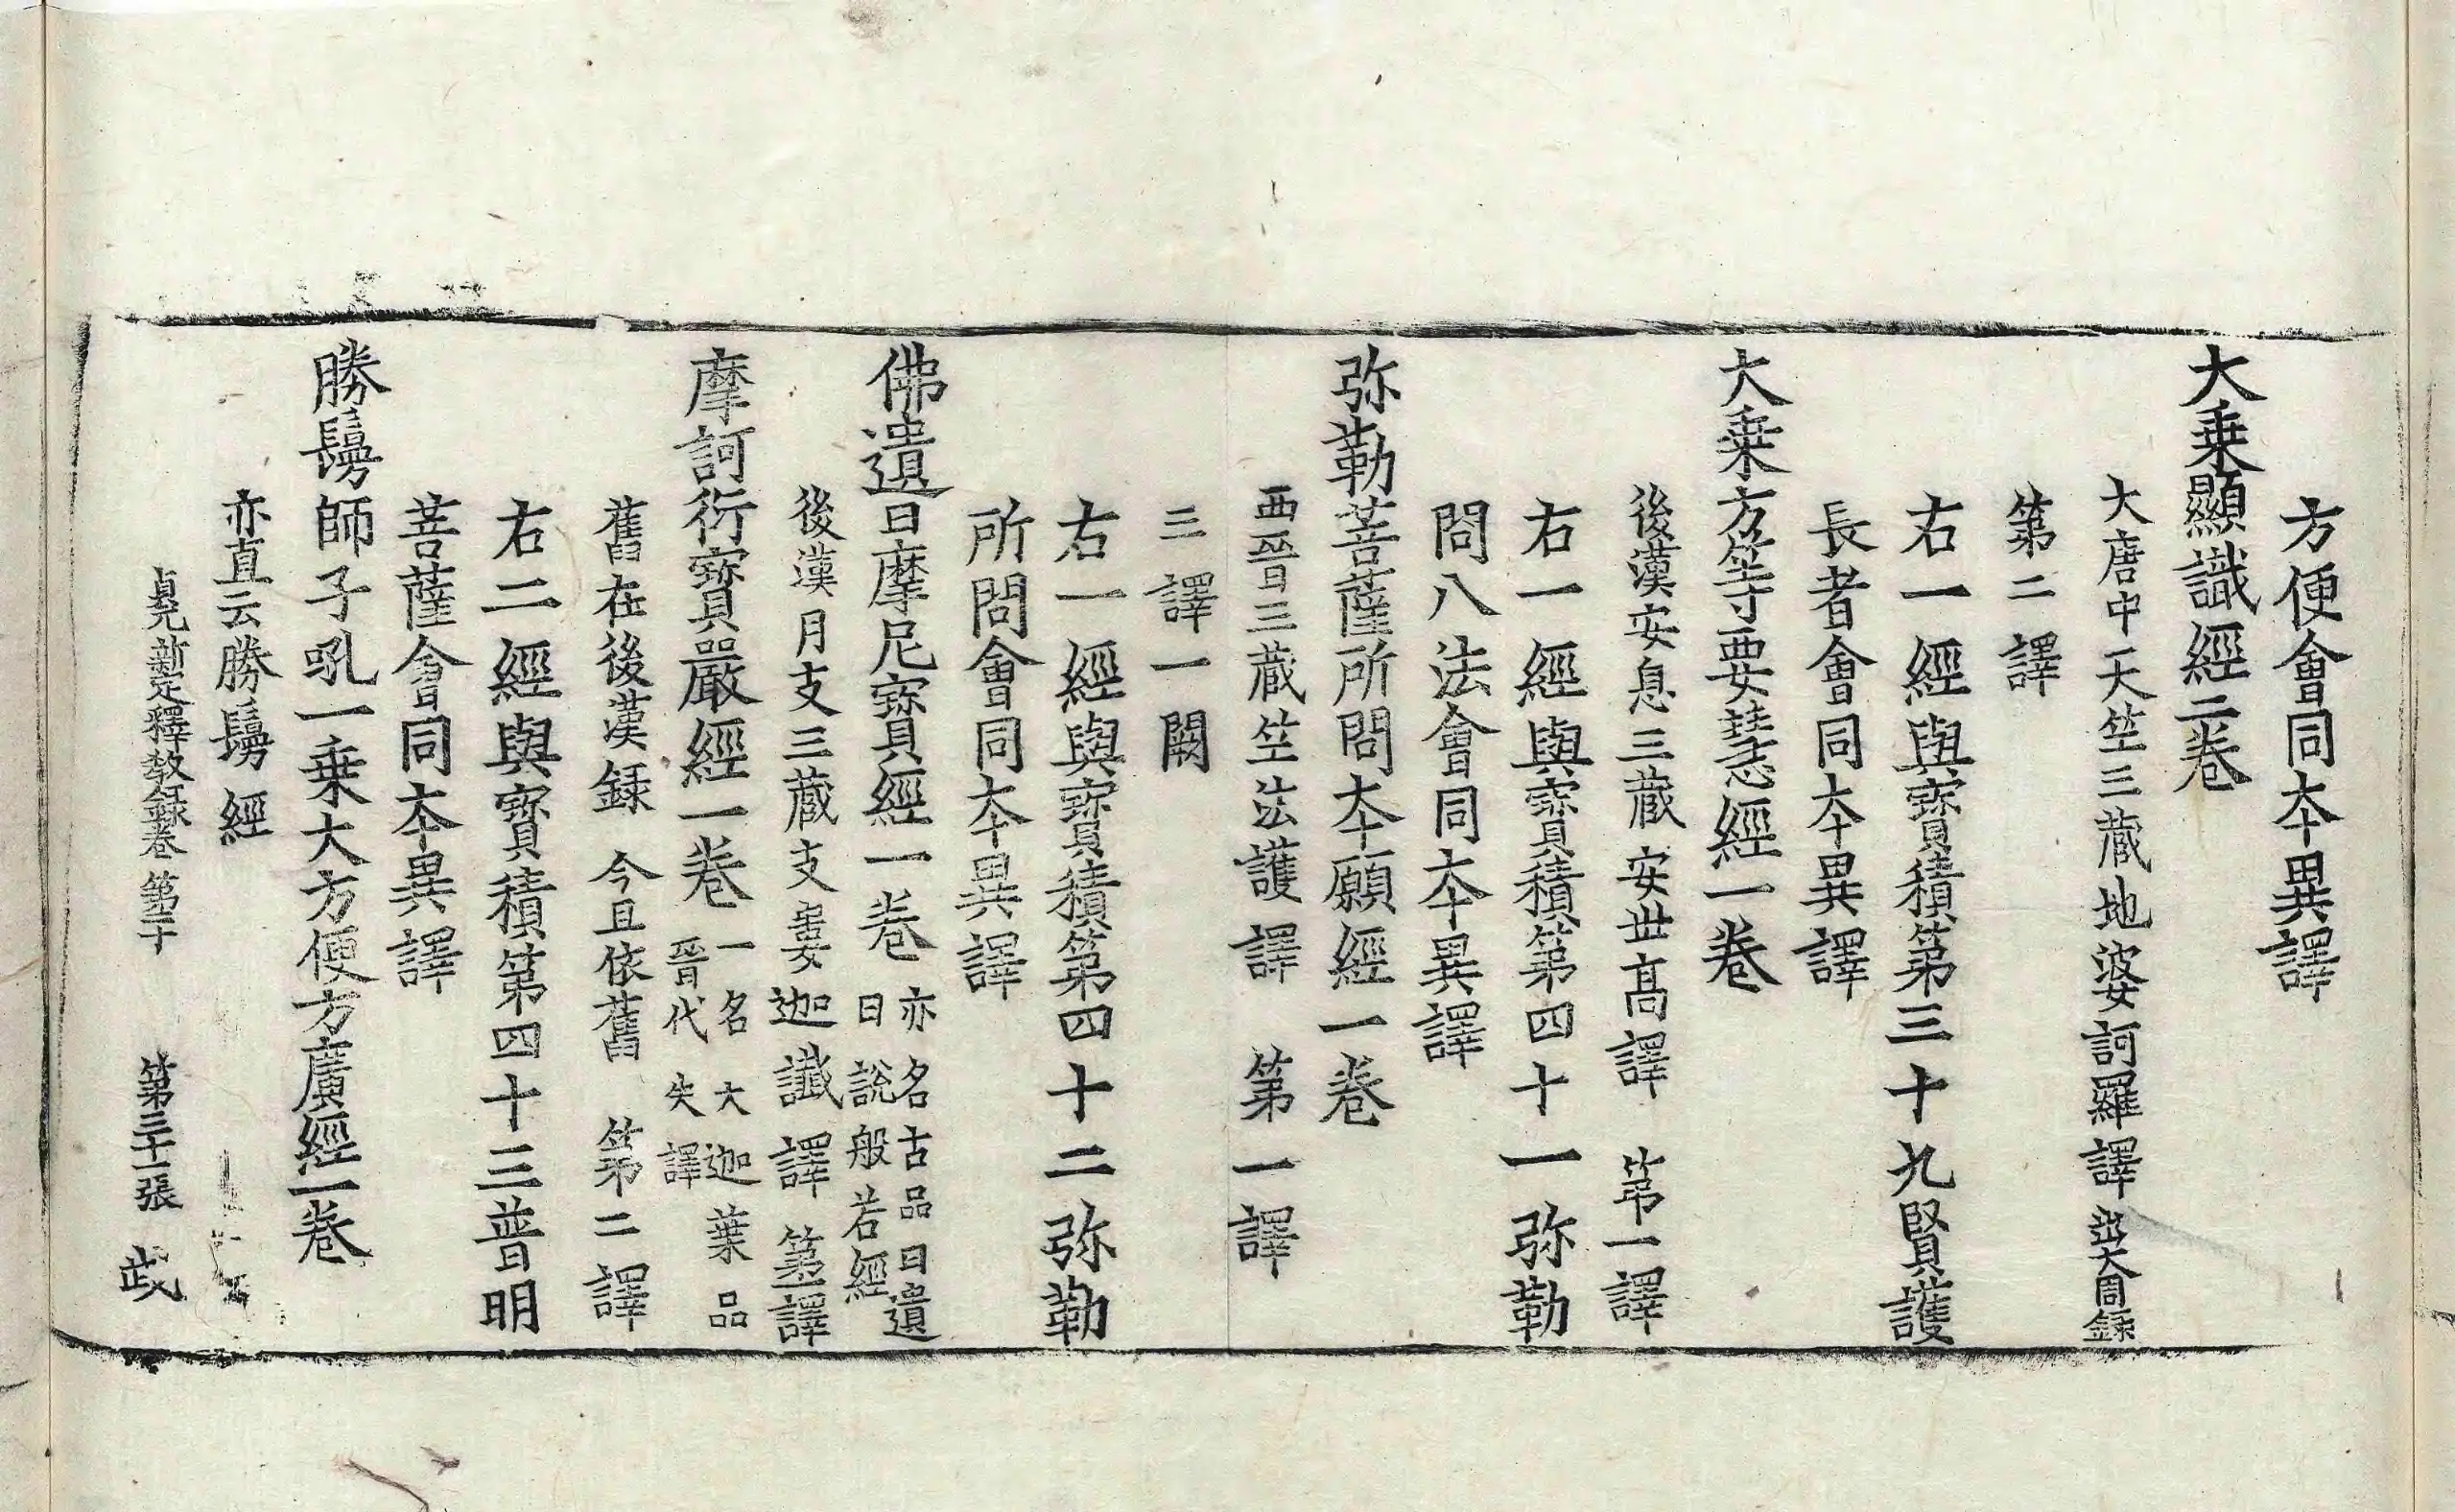 方便會同夲異譯
大乗顯識經二卷
大唐中天竺三藏地婆訶羅譯出大周錄
第二譯
右一經與寳積第三十九賢護
長者會同夲異譯
大乗方等要慧經一卷
後漢安息三藏安世高譯 第一譯
右一經與寳積第四十一弥勒
問八法會同夲異譯
弥勒菩薩所問夲願經一卷
西晉三藏竺法護譯 第一譯
三譯一闕
右一經與寳積第四十二弥勒
所問會同夲異譯
佛遺日摩尼寳經一卷 亦名古品曰遺
日說般若經
後漢月支三藏支婁迦讖譯 第一譯
摩訶衍寳嚴經一卷 一名大迦葉品
晉代失譯
舊在後漢錄 今且依舊 第二譯
右二經與寳積第四十三普明
菩薩會同夲異譯
勝鬘師子吼一乗大方便方廣經一卷
亦直云勝鬘經
貞元新定釋教錄卷第二十 第三十一張